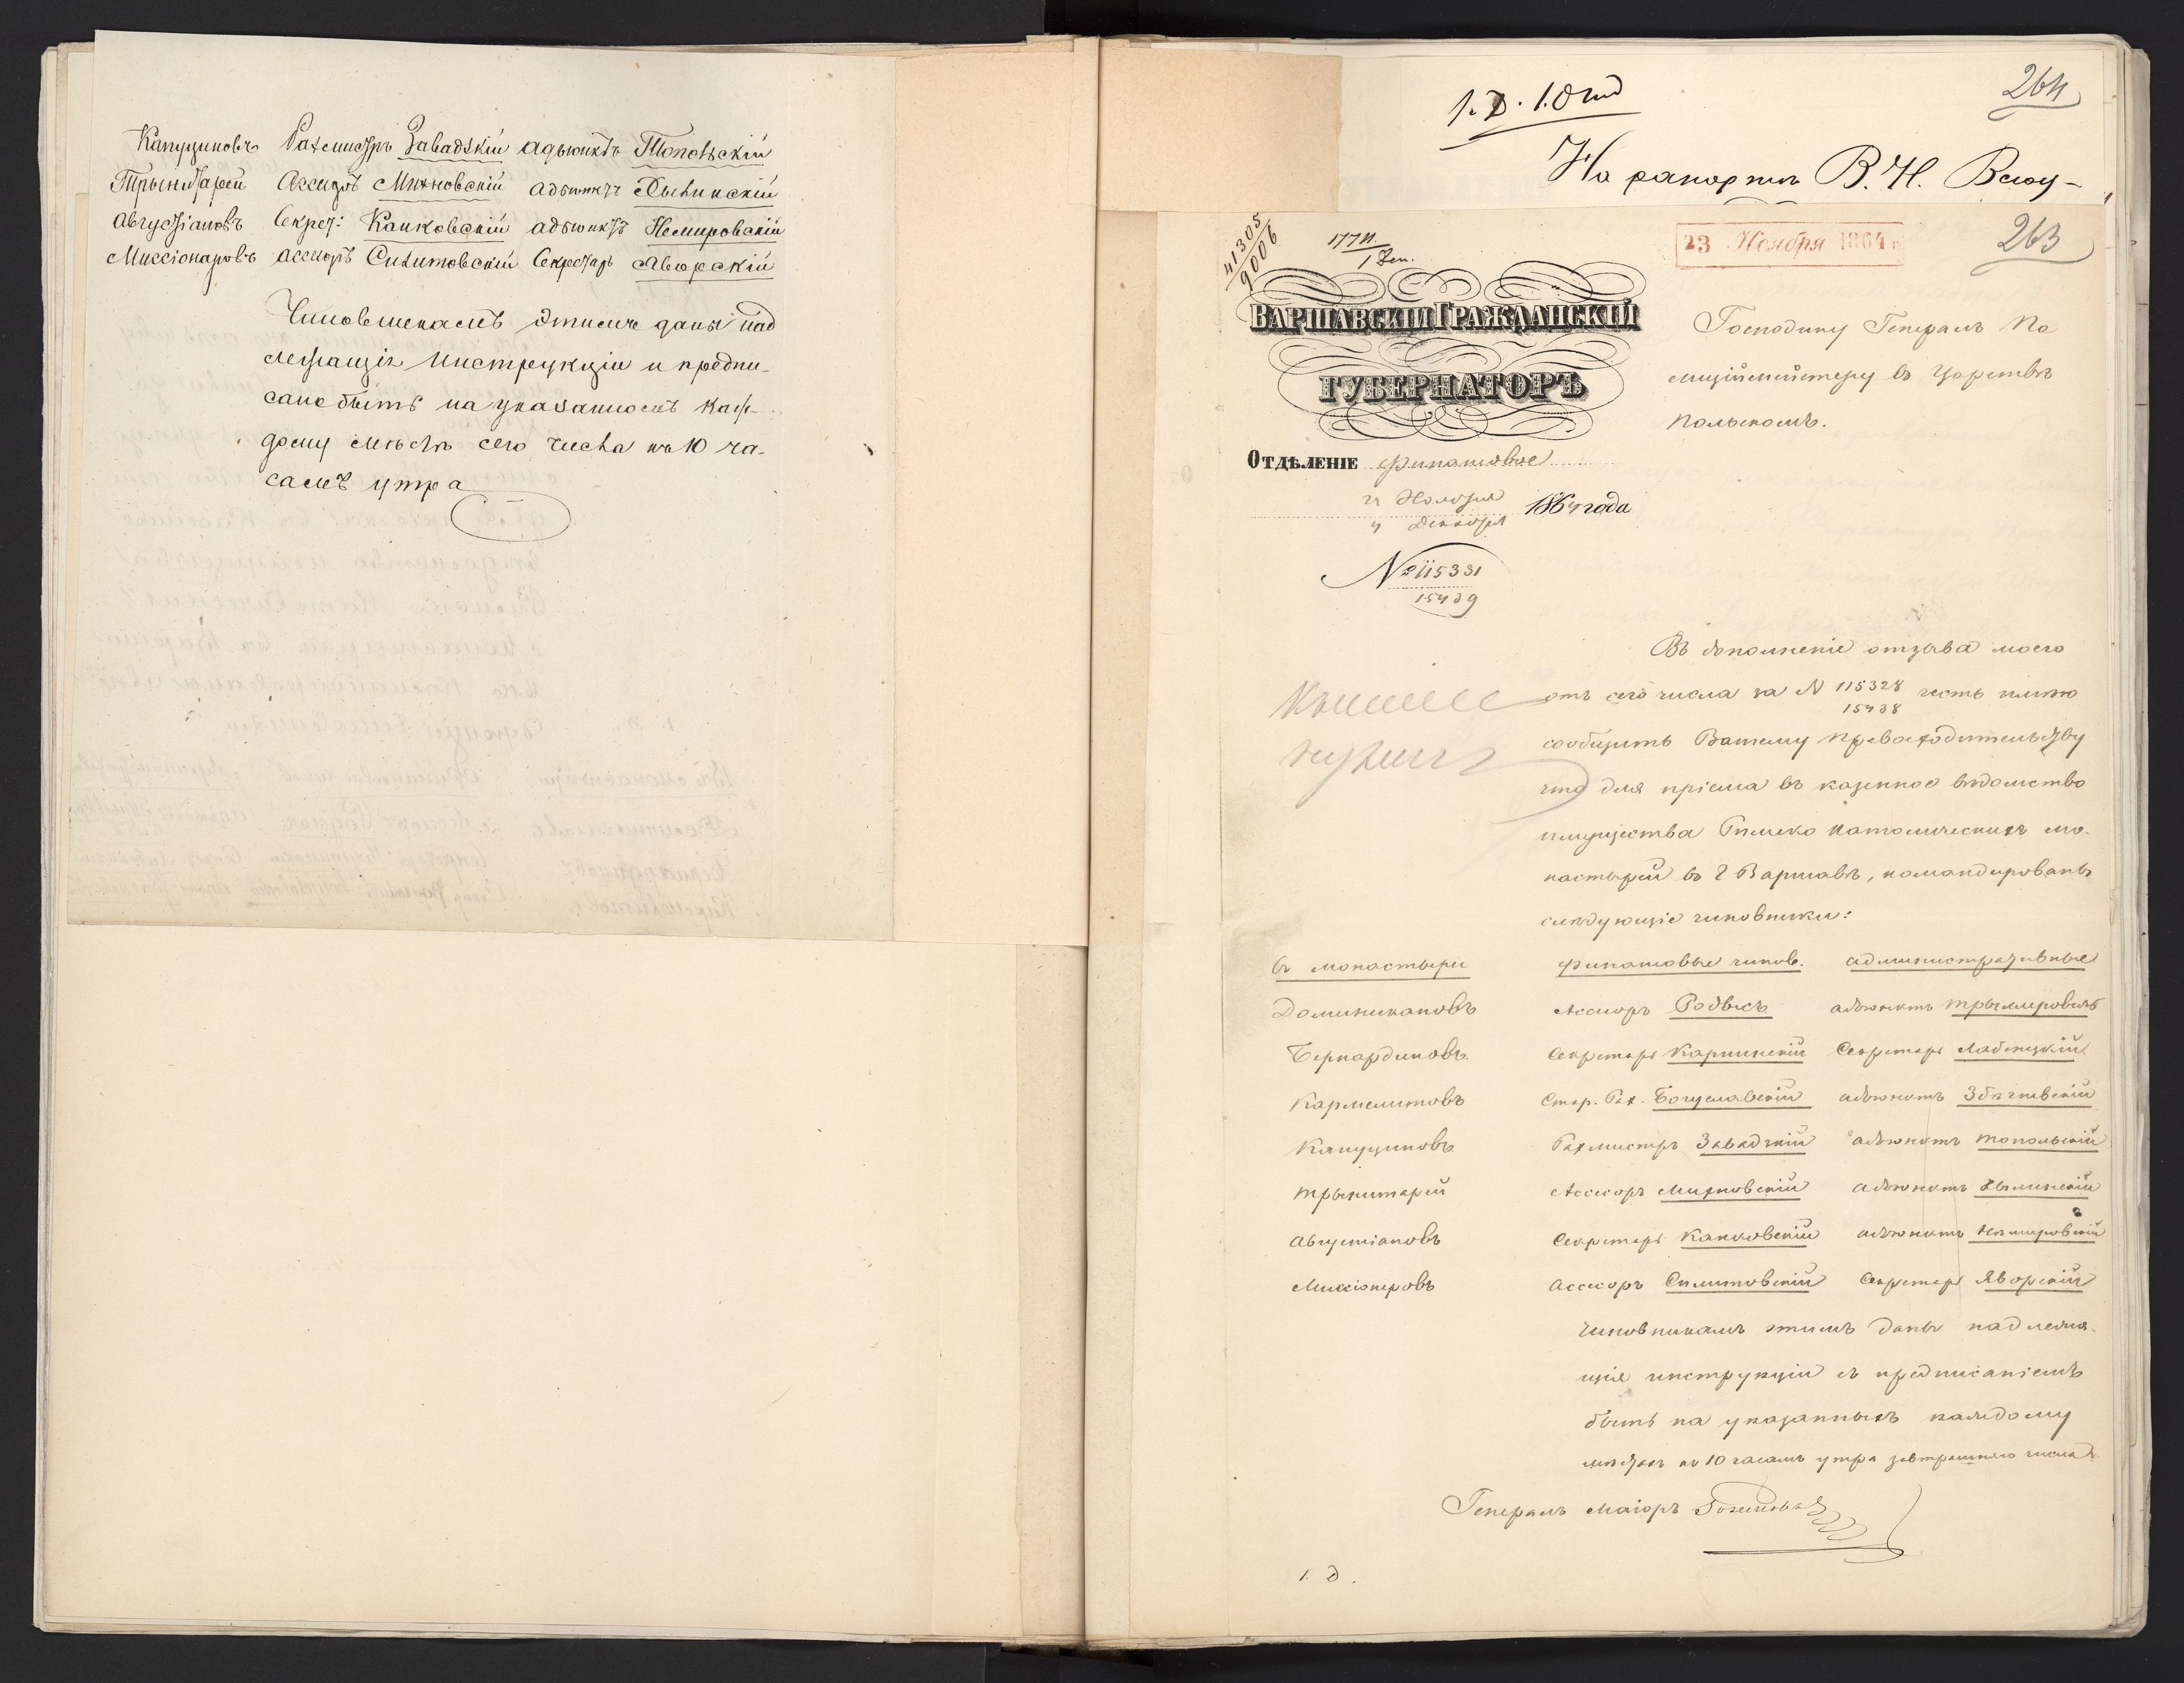 Капуциновъ Рахмистръ Завадзкій адъюнктъ Топольскій
Трынитарей Ассесоръ Михновскій адъюнктъ Хылинскій
Августіановъ Секрет: Канковскій адъюнктъ Немировскій
Миссіонаровъ ассесоръ Силитовскій Секретарь Яворскій
Чиновникамъ этимъ даны над
лежащія инструкціи и предпи-
сано быть на указанномъ каж-
дому мѣстѣ сего числа къ 10 ча-
самъ утра
1. Д. 1. Отд
264
На рапортъ В. Н. Всю-
41305
9006
1774
1 Ден.
23 Ноября 1864 г.
263
ВАРШАВСКІЙ ГРАЖДАНСКІЙ
ГУБЕРНАТОРЪ
Отдѣленіе финансовое
22 Ноября
4 Декабря 1864 года
№ 115331
15439
Господину Генералъ По
лиціймейстеру въ Царствѣ
Польскомъ.
Въ дополненіе отзыва моего
отъ сего числа за N 115328
15438 честь имѣю
сообщить Вашему Превосходительству
что для пріема въ казенное вѣдомство
имущества Римско Католическихъ мо-
настырей въ г Варшавѣ, командированы
слѣдующіе чиновники:
въ монастыри финансовые чинов. административные
Доминикановъ Ассесоръ Родысъ адъюнктъ
Бернардиновъ Секретарь Карпинскій Секретарь
Кармелитовъ Стар. Рах. Богуславскій адъюнктъ
Капуциновъ Рахмистръ Завадзкій адъюнктъ Топольскій
Трынитарей Ассесоръ Михновскій адъюнктъ Хылинскій
Августіановъ Секретарь Канковскій адъюнктъ Немировскій
Миссіонеровъ Ассесоръ Силитовскій Секретарь Яворскій
Чиновникамъ этимъ даны надлежа-
щія инструкціи съ предписаніемъ
быть на указанныхъ каждому
мѣстахъ къ 10 часамъ утра завтрашняго числа
Генералъ Маіоръ
1. д.